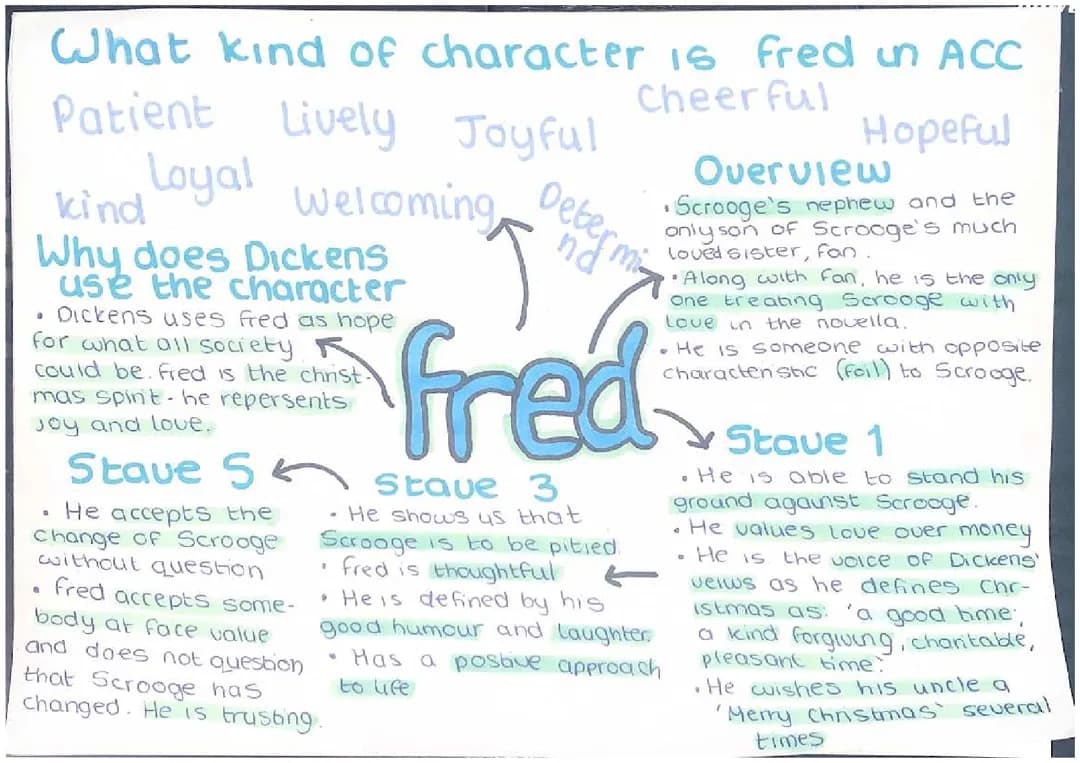 What kind of character is Fred in ACC
Patient
Lively
Joyful
Cheerful
Hopeful
Loyal
kind
Welcoming
Determi
nd
Overview
• Scrooge's nephew and the
only son of Scrooge's much
loved sister, Fan.
• Along with Fan, he is the only
one treating Scrooge with
love in the novella.
• He is someone with opposite
characteristic (foil) to Scrooge.
Why does Dickens
use the character
• Dickens uses Fred as hope
for what all society
could be. Fred is the christ-
mas spirit - he repersents
joy and love.
Fred
Stave 1
• He is able to stand his
ground against Scrooge.
• He values love over money
• He is the voice of Dickens'
veiws as he defines Chr-
istmas as: 'a good time;
a kind forgiving, charitable,
pleasant time.'
• He wishes his uncle a
'Merry Christmas' several
times
Stave 3
• He shows us that
Scrooge is to be pitied.
• Fred is thoughtful
• He is defined by his
good humour and laughter.
• Has a postive approach
to life
Stave 5
• He accepts the
change of Scrooge
without question
• Fred accepts some-
body at face value
and does not question
that Scrooge has
changed. He is trusting.